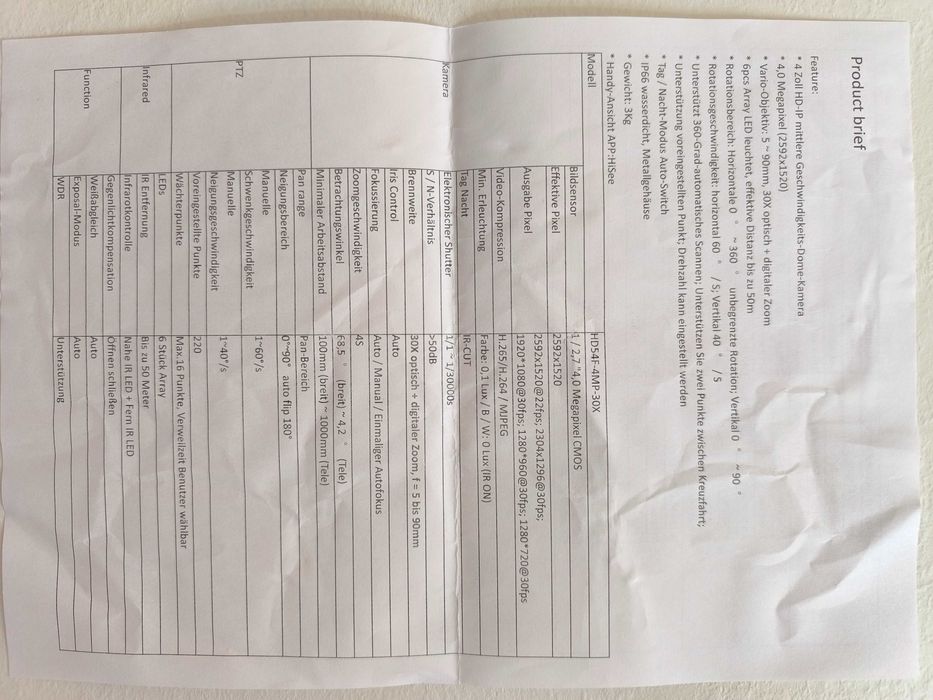 Product brief
Feature:
* 4 Zoll HD-IP mittlere Geschwindigkeits-Dome-Kamera
* 4,0 Megapixel (2592x1520)
* Vario-Objektiv: 5 ~ 90mm, 30X optisch + digitaler Zoom
* 6pcs Array LED leuchtet, effektive Distanz bis zu 50m
* Rotationsbereich: Horizontale 0 ° ~ 360 ° unbegrenzte Rotation; Vertikal 0 ° ~ 90 °
* Rotationsgeschwindigkeit: horizontal 60 ° / S; Vertikal 40 ° / S
* Unterstützt 360-Grad-automatisches Scannen; Unterstützen Sie zwei Punkte zwischen Kreuzfahrt;
* Unterstützung voreingestellten Punkt; Drehzahl kann eingestellt werden
* Tag / Nacht-Modus Auto-Switch
* IP66 wasserdicht, Metallgehäuse
* Gewicht: 3Kg
* Handy-Ansicht APP:HiSee
Modell HD54F-4MP-30X
Bildsensor 1 / 2,7 "4,0 Megapixel CMOS
Effektive Pixel 2592x1520
Ausgabe Pixel 2592x1520@22fps; 2304x1296@30fps;
1920*1080@30fps; 1280*960@30fps; 1280*720@30fps
Video-Kompression H.265/H.264 / MJPEG
Min. Erleuchtung Farbe: 0,1 Lux / B / W: 0 Lux (IR ON)
Tag Nacht IR-CUT
Kamera Elektronischer Shutter 1/1 ~ 1/30000s
S / N-Verhältnis >50dB
Brennweite 30X optisch + digitaler Zoom, f = 5 bis 90mm
Iris Control Auto
Fokussierung Auto / Manual / Einmaliger Autofokus
Zoomgeschwindigkeit 4S
Betrachtungswinkel 68,5 ° (breit) ~ 4,2 ° (Tele)
Minimaler Arbeitsabstand 100mm (breit) ~ 1000mm (Tele)
Pan range Pan-Bereich
Neigungsbereich 0°~90° auto flip 180°
Manuelle
Schwenkgeschwindigkeit 1~60°/s
PTZ Manuelle
Neigungsgeschwindigkeit 1~40°/s
Voreingestellte Punkte 220
Wächterpunkte Max.16 Punkte, Verweilzeit Benutzer wählbar
LEDs 6 Stück Array
Infrared IR Entfernung Bis zu 50 Meter
Infrarotkontrolle Nahe IR LED + Fern IR LED
Gegenlichtkompensation Öffnen schließen
Function Weißabgleich Auto
Exposal-Modus Auto
WDR Unterstützung